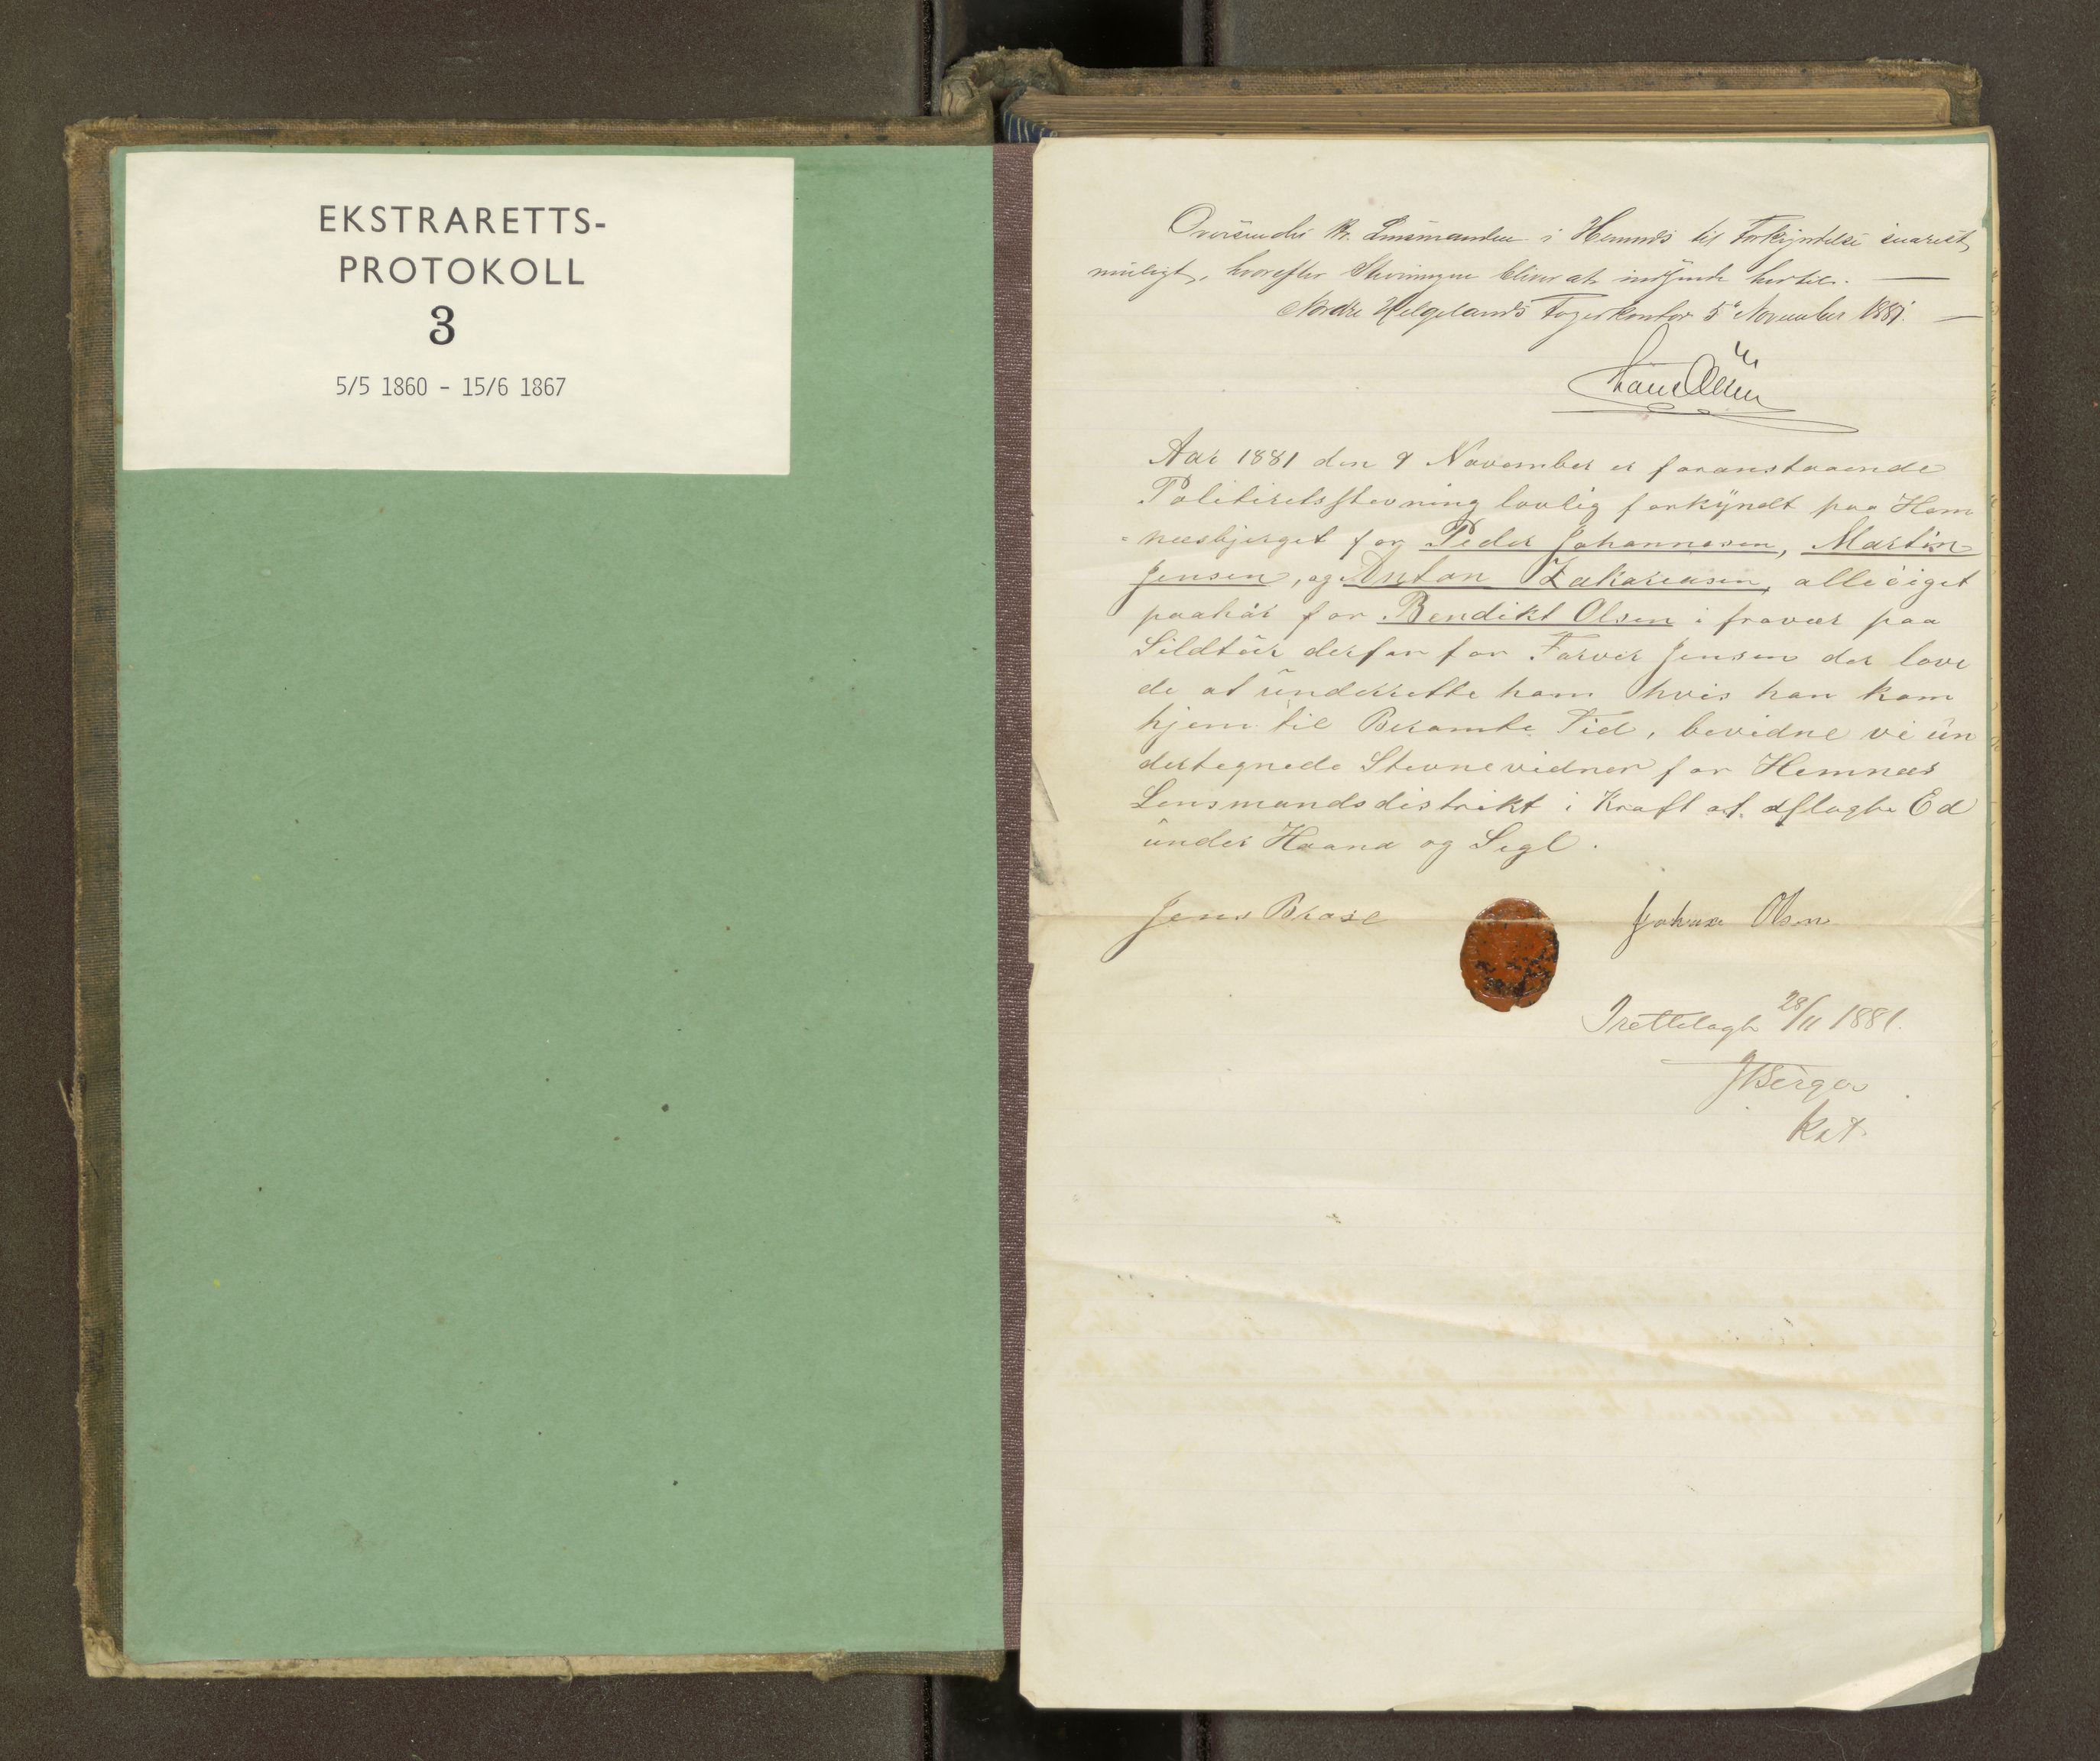 EKSTRARETTS-
PROTOKOLL
3
5/5 1860 - 15/6 1867
Oversendes Hr. Lensmanden i Hemnæs til Forkyndelse snarest
muligt, hvorefter Stevningen bliver at indsende hertil.
Nordre Helgelands Fogerkontor 5te November 1881.
Aar 1881 den 9 November er foranstaaende
Politiretsstevning lovlig forkyndt paa Hem
-næsbjerget for Peder Johannesen, Martin
Jensen, og Anton Zakariasen, alle eiget
paahør for Bendikt Olsen i fravær paa
Sildtur derfor for Farver Jensen der love
de at underrette ham hvis han kom
hjem til Beramte Tid, bevidne vi un
dertegnede Stevnevidner for Hemnæs
Lensmandsdistrikt i Kraft af aflagte Ed
under Haand og Segl.
Jens Brase Johan Olsen
Irettelagt 28/11 1881.
JBerger